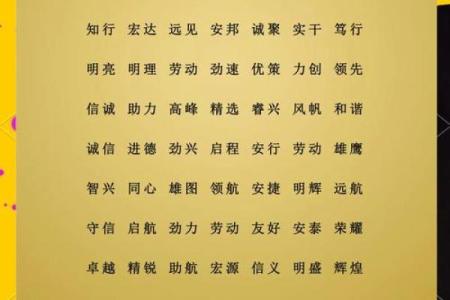 知行 宏达 远见 安邦 诚聚 实干 笃行
明亮 明理 劳动 劲速 优策 力创 领先
信诚 助力 高峰 精选 睿兴 风帆 和谐
诚信 进德 劲兴 启程 安行 劳动 雄鹰
智兴 同心 雄图 领航 安捷 明辉 远航
守信 启航 劲力 劳动 友好 安泰 荣耀
卓越 精锐 助航 宏源 信义 明盛 辉煌